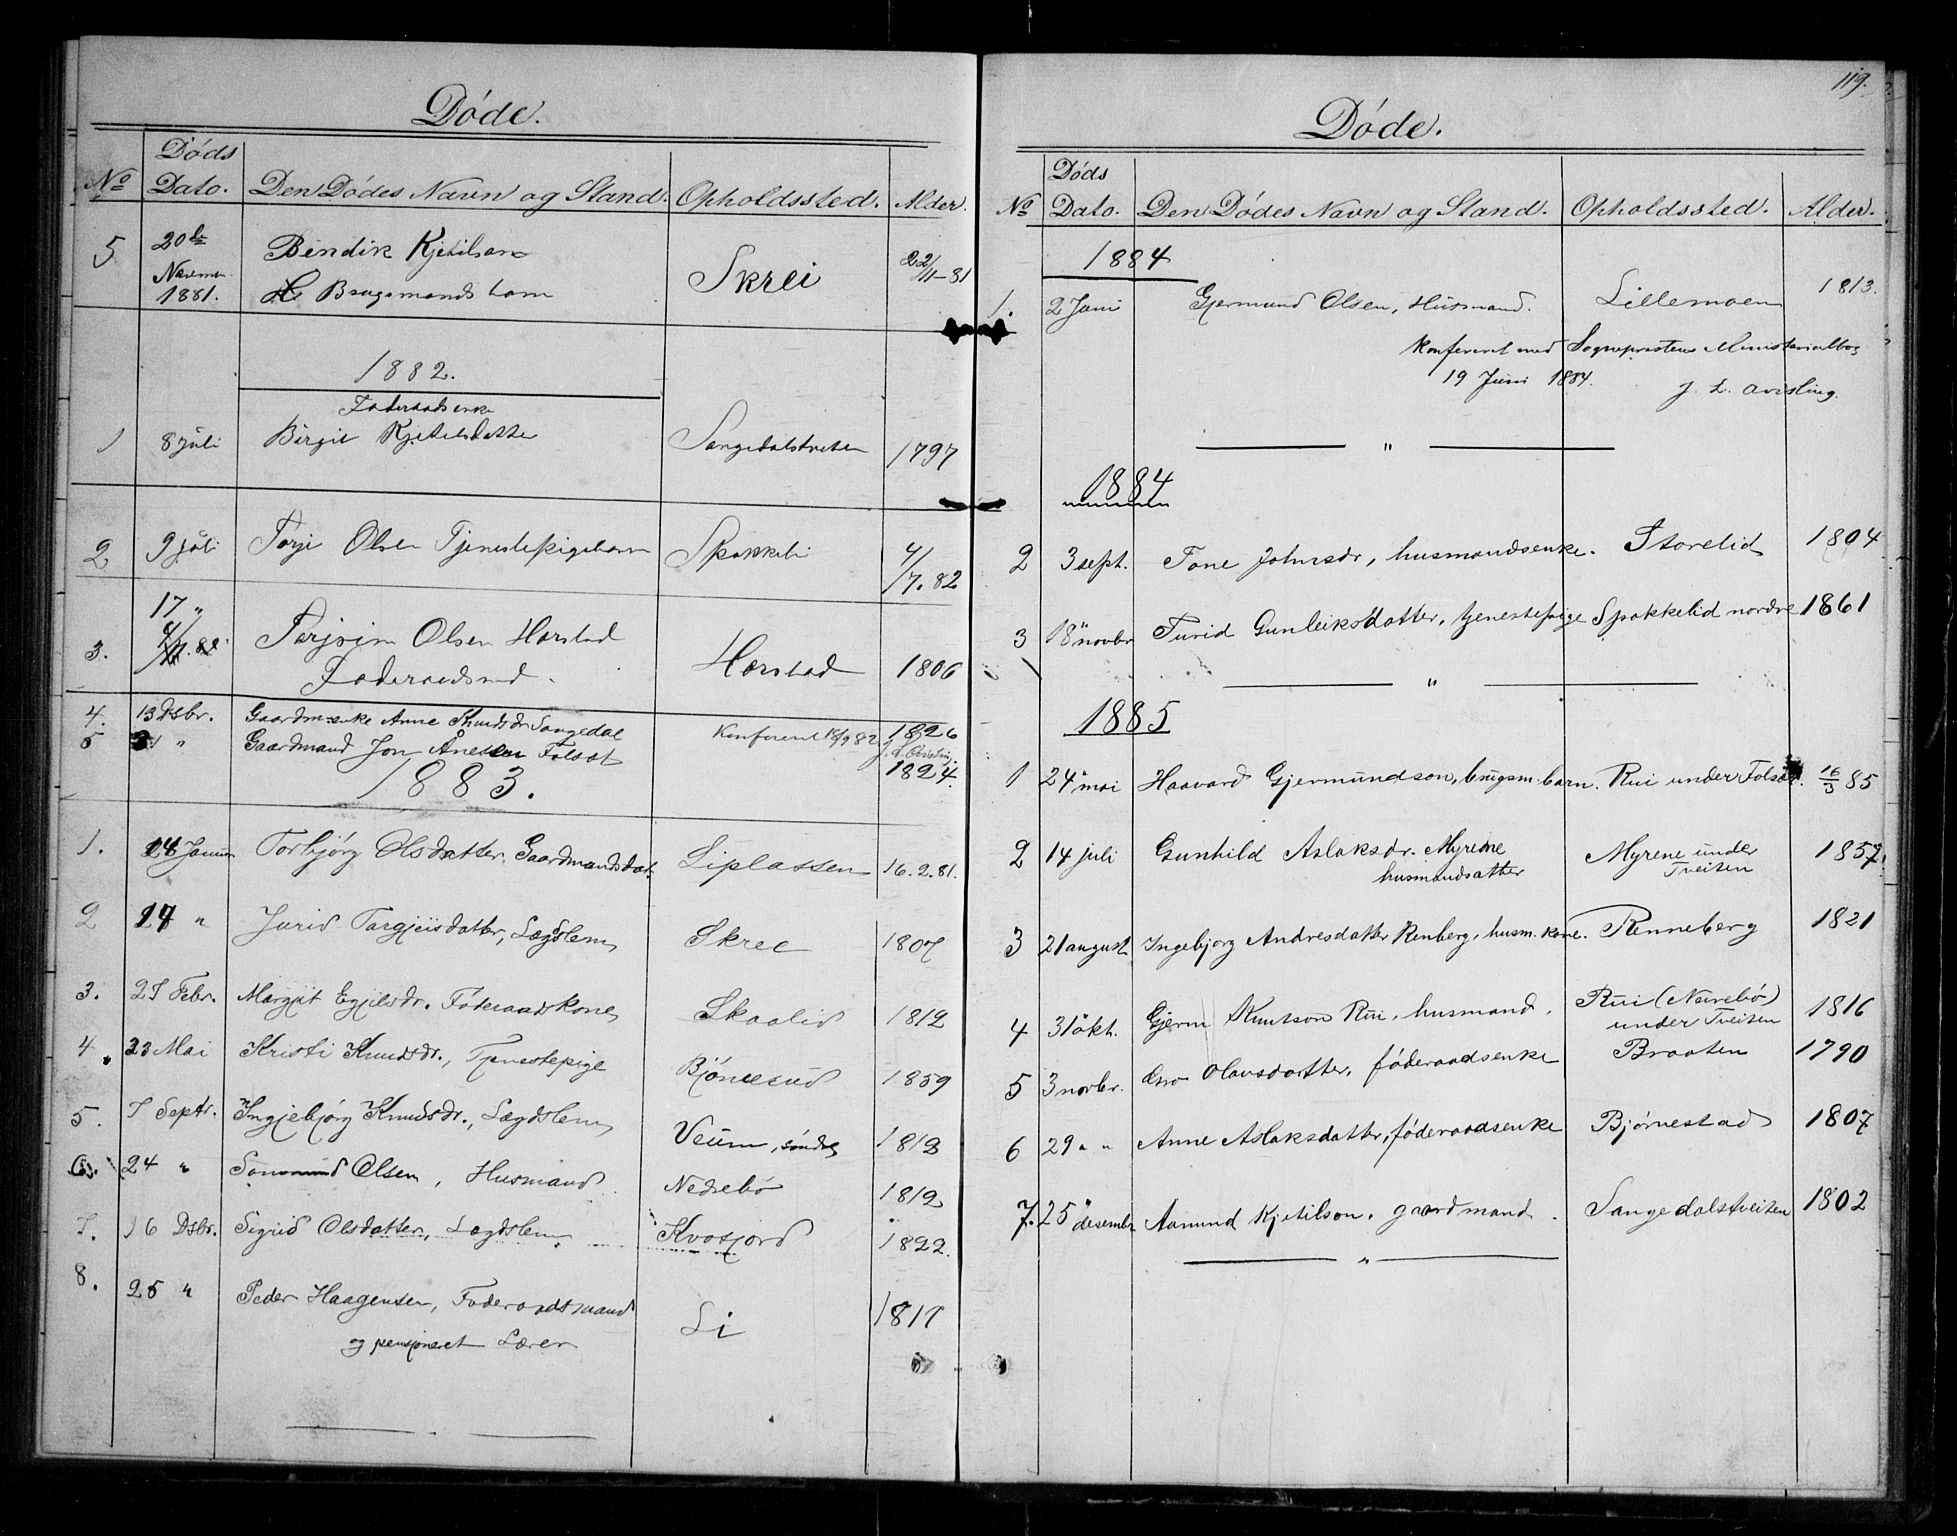 Døde.
Døds
No Dato. Den Dødes Navn og Stand. Opholdssted. Alder.
5 20de Bendik Kjetilsen Skrei 22/11-81
Novemer
1881. Brugsmands barn
1882.
Føderaadsenke
1 8 juli Birgit Kjetilsdatter Sangedalstveten 1797
2 9 juli Torje Olsen Tjenestepigebarn Spokkeli 4/7.82
17 "
3. Tarjein Olsen Harstad Harstad 1806
Føderaadsmd.
4. 13 Dsbr. Gaardm.enke Anne Knudsdr Sangedal Konfereret 1826
5 " Gaardmand Jon Anesen Folsot 1824.
1883.
1. Januar Torbjørg Olsdatter, Gaardmandsdat. Liplassen 16.2.81.
2 27 " Jurid Targjeisdatter, Lægdslem Skree 1807
3. 27 Febr. Margjit Egjilsdr. Føderaadskone Skaalid 1812
4. 23 Mai Kristi Knudsdr., Tjenestepige Bjönesud 1859
5. 7 Septr. Ingjebjørg Knudsdr., Lægdslem Veum, søndre 1813
6. 24 " Olsen, Husmand Nedrebø 1812
7. 16 Dsbr. Sigrid Olsdatter, Lægdslem Kvosjord 1822.
8. 25 " Peder Haagensen, Føderaadsmand Li 1817
og pensjoneret Lærer
119.
Døde.
Døds
No Dato. Den Dødes Navn og Stand. Opholdssted. Alder.
1884
1. 2 Juni Gjermund Olsen, Husmand. Lillemoen 1813.
Konfereret med Sogneprestens Ministerialbog
19 Juni 1884. J. L. Qvisling.
"
1884
2 3 sept. Tone Johnsdr, husmandsenke. Storelid 1804
3 18 novbr Turid Gunleiksdatter, tjenestepige Spokkelid nordre 1861
"
1885
1 24 mai Haavard Gjermundson, brugsm. barn. Rui under Folsot. 16/3 85
2 14 juli Gunhild Aslaksdr. Myrene Myrene under 1857.
husmandsatter Tveiten
3 21 august Ingebjorg Andresdatter Renberg, husm. kone. Renneberg 1821
4 31 okt. Gjerm Knutson Rui, husmand. Rui (Neirebø) 1816
under Tveiten
5 3 novbr. Olavsdortter, føderaadsenke Braaten 1790
6 29 " " Anne Aslaksdatter, føderaadsenke Bjørnestad 1807
7. 25 desembr Aamund Kjetilson, gaardmand. Sangedalstveiten 1802
"